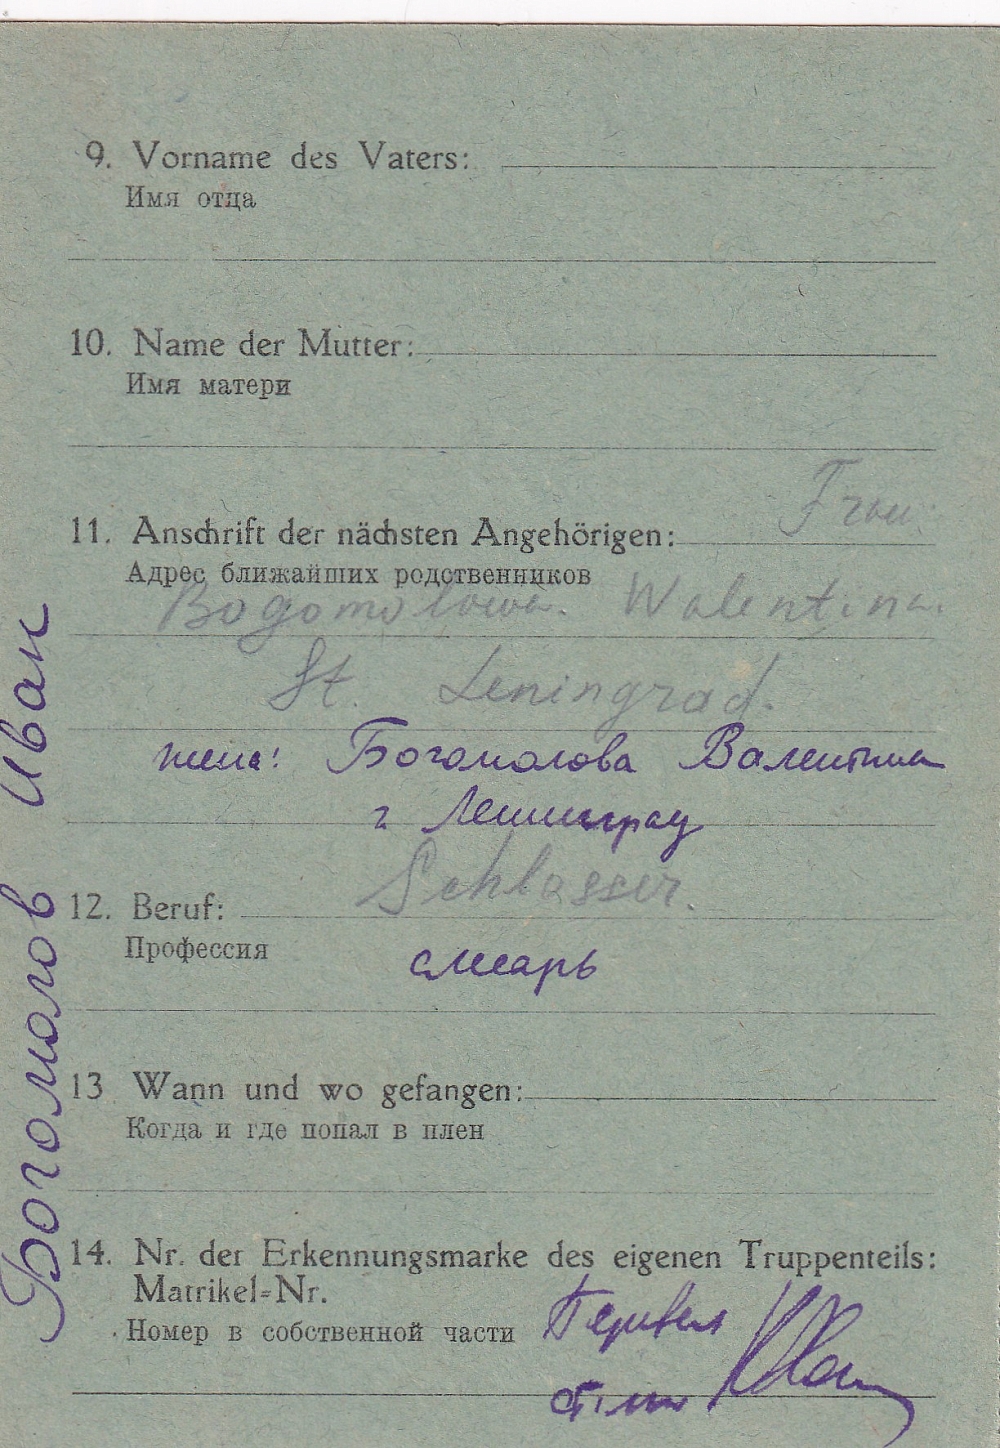 9. Vorname des Vaters:
Имя отца
10. Name der Mutter:
Имя матери
11. Anschrift der nächsten Angehörigen: Frau
Адрес ближайших родственников
Bogomolowa. Walentina.
St. Leningrad.
жена: Богомолова Валентина
г Ленинград
12. Beruf: Schlosser.
Профессия
слесарь
13 Wann und wo gefangen:
Когда и где попал в плен
14. Nr. der Erkennungsmarke des eigenen Truppenteils:
Matrikel-Nr.
Номер в собственной части
Перевел
Богомолов Иван